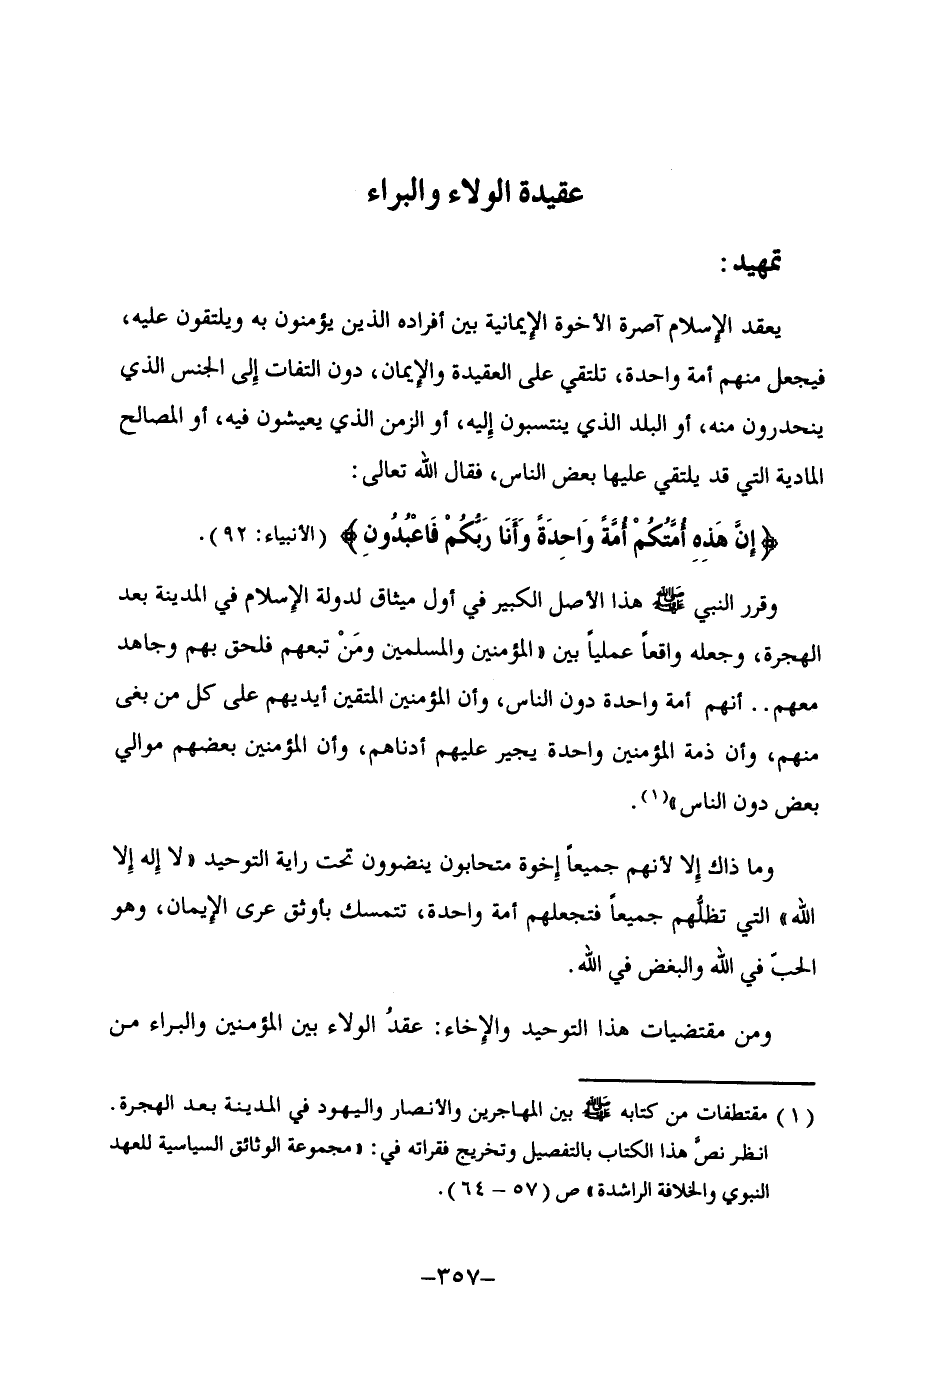 عقيدة الولاء والبراء
تمهيد :
يعقد الإسلام آصرة الأخوة الإيمانية بين أفراده الذين يؤمنون به ويلتقون عليه،
فيجعل منهم أمة واحدة، تلتقي على العقيدة والإيمان، دون التفات إلى الجنس الذي
ينحدرون منه، أو البلد الذي ينتسبون إليه، أو الزمن الذي يعيشون فيه، أو المصالح
المادية التي قد يلتقي عليها بعض الناس، فقال الله تعالى:
﴿إِنَّ هَذِهِ أُمَّتُكُمْ أُمَّةً وَاحِدَةً وَأَنَا رَبُّكُمْ فَاعْبُدُونِ﴾ (الأنبياء: ٩٢).
وقرر النبي ﷺ هذا الأصل الكبير في أول ميثاق لدولة الإسلام في المدينة بعد
الهجرة، وجعله واقعاً عملياً بين «المؤمنين والمسلمين ومَنْ تبعهم فلحق بهم وجاهد
معهم.. أنهم أمة واحدة دون الناس، وأن المؤمنين المتقين أيديهم على كل من بغى
منهم، وأن ذمة المؤمنين واحدة يجير عليهم أدناهم، وأن المؤمنين بعضهم موالي
بعض دون الناس»(١).
وما ذاك إلا لأنهم جميعاً إخوة متحابون ينضوون تحت راية التوحيد «لا إله إلا
الله» التي تظلُّهم جميعاً فتجعلهم أمة واحدة، تتمسك بأوثق عرى الإيمان، وهو
الحبّ في الله والبغض في الله.
ومن مقتضيات هذا التوحيد والإخاء: عقدُ الولاء بين المؤمنين والبراء من
(١) مقتطفات من كتابه ﷺ بين المهاجرين والأنصار واليهود في المدينة بعد الهجرة.
انظر نصَّ هذا الكتاب بالتفصيل وتخريج فقراته في: «مجموعة الوثائق السياسية للعهد
النبوي والخلافة الراشدة» ص (٥٧ – ٦٤).
–٣٥٧–